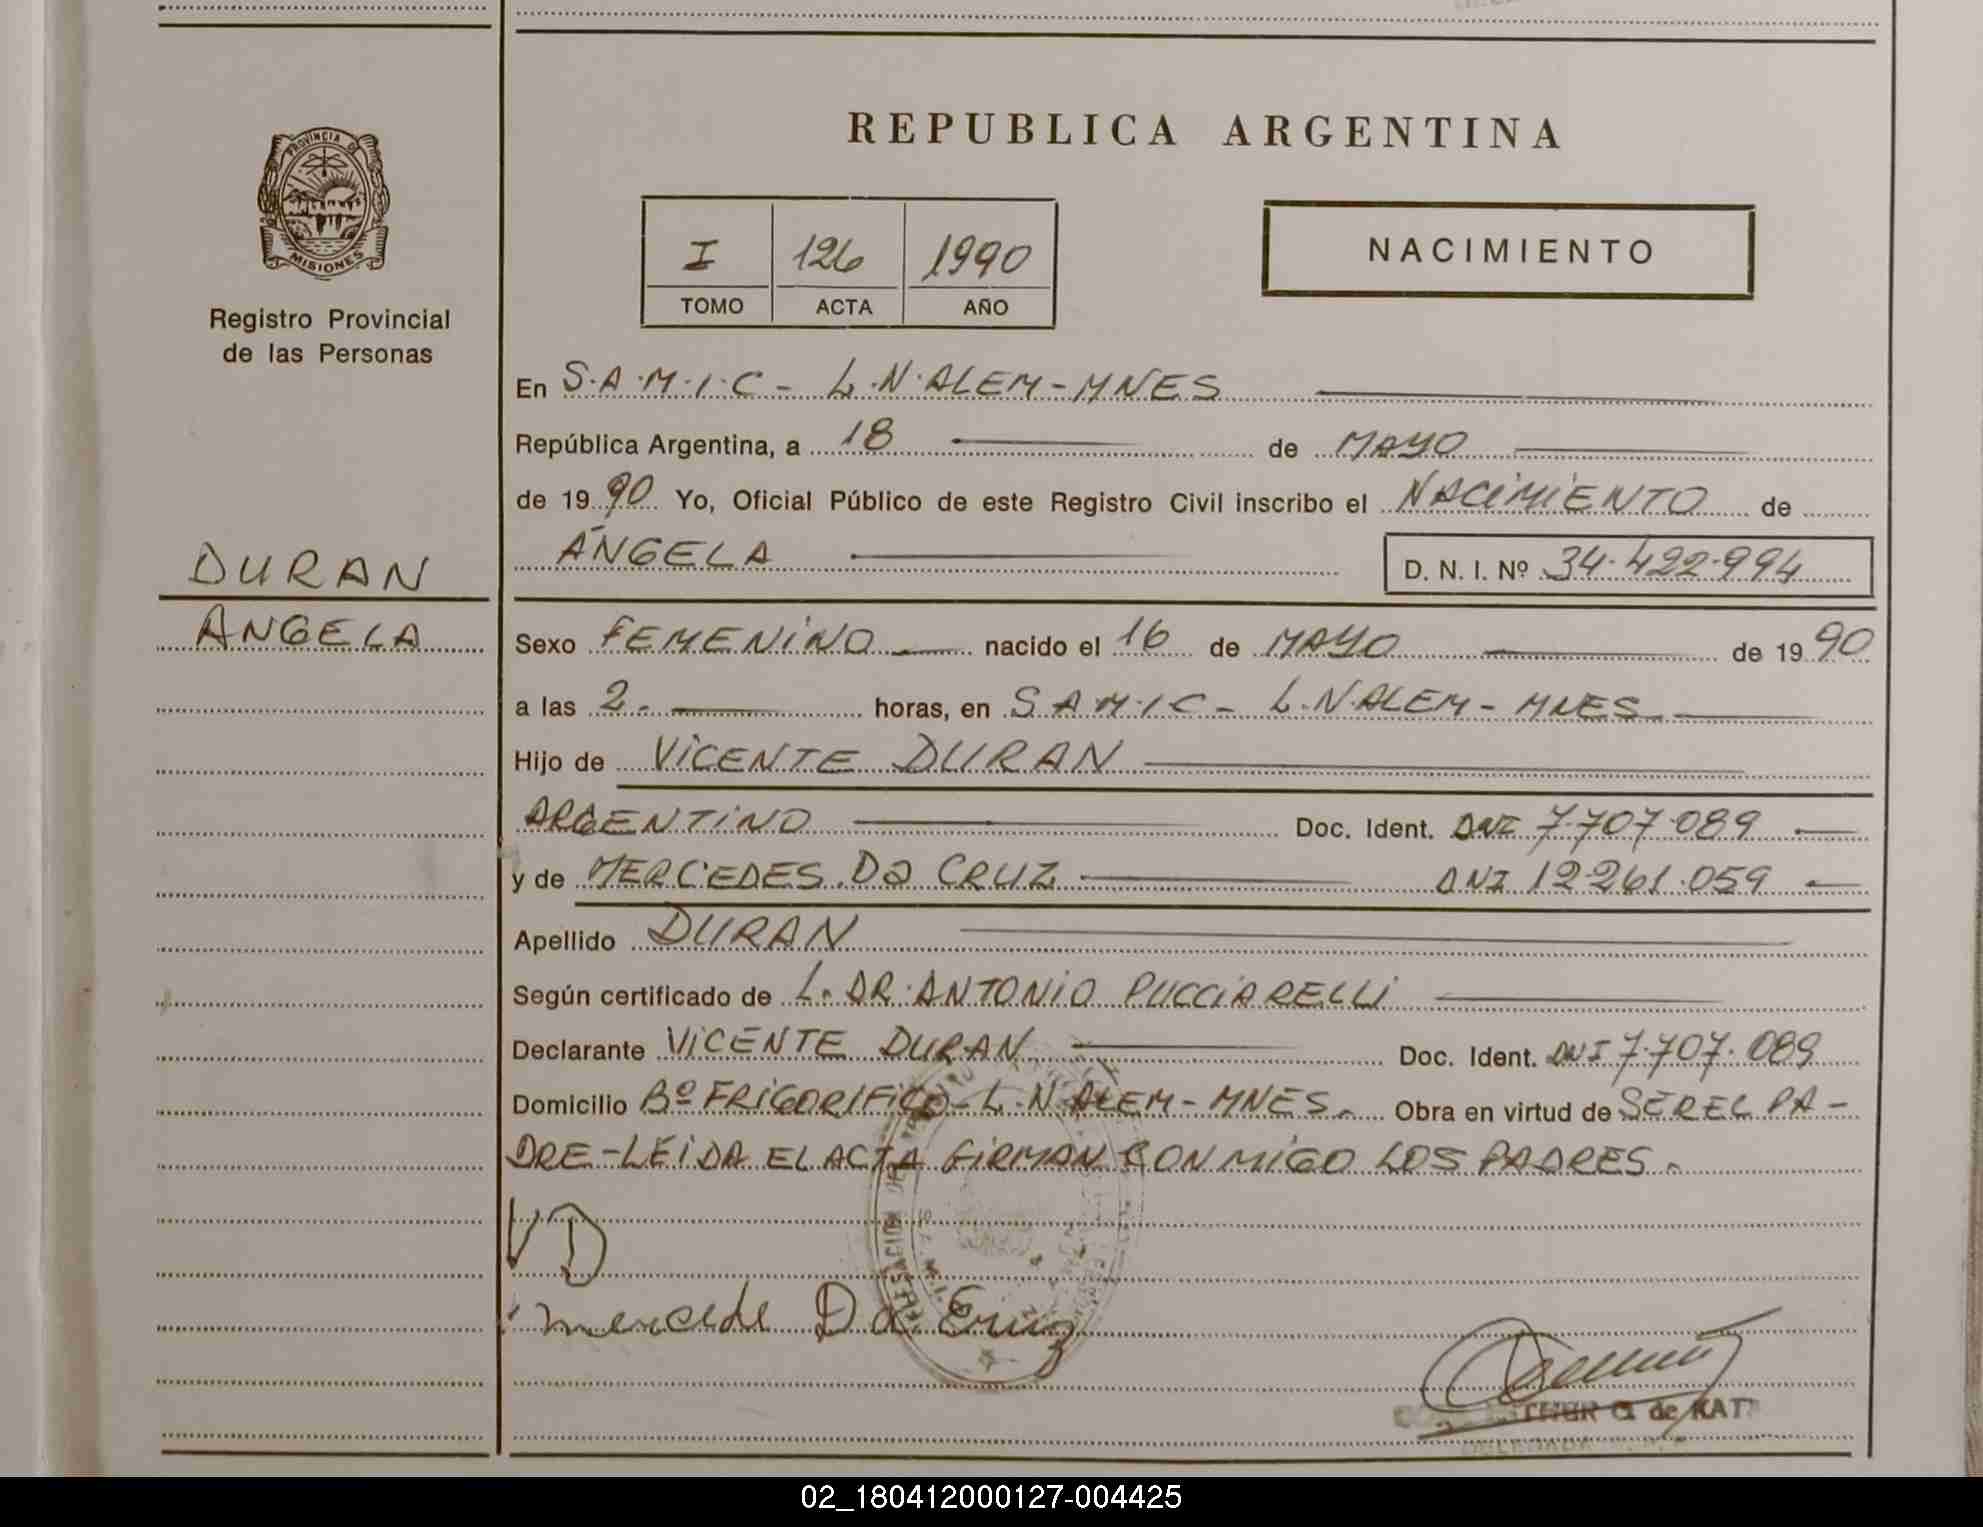 PROVINCIA DE
MISIONES
Registro Provincial
de las Personas
DURAN
ANGELA
REPUBLICA ARGENTINA
I 126 1990
TOMO ACTA AÑO
NACIMIENTO
En S.A.M.I.C - L.N.ALEM - MNES
República Argentina, a 18 de MAYO
de 1990 Yo, Oficial Público de este Registro Civil inscribo el NACIMIENTO de
ÁNGELA D. N. I. Nº 34.422.994
Sexo FEMENINO nacido el 16 de MAYO de 1990
a las 2.- horas, en S.A.M.I.C - L.N.ALEM - MNES
Hijo de VICENTE DURAN
ARGENTINO Doc. Ident. DNI 7.707.089
y de MERCEDES Da CRUZ DNI 12.261.059
Apellido DURAN
Según certificado de L. DR. ANTONIO PUCCIARELLI
Declarante VICENTE DURAN Doc. Ident. DNI 7.707.089
Domicilio Bº FRIGORIFICO - L.N.ALEM - MNES. Obra en virtud de SER EL PA-
DRE - LEIDA EL ACTA FIRMAN CONMIGO LOS PADRES.
VD
mercede Da Cruz
G. de KAT
02_180412000127-004425